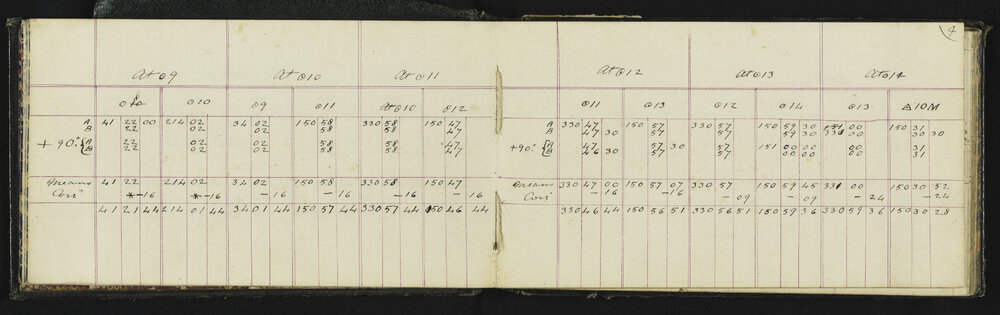 4
At ⊙9 At ⊙10 At ⊙11 At ⊙12 At ⊙13 At ⊙14
⊙10 ⊙9 ⊙11 ⊙10 ⊙12 ⊙11 ⊙13 ⊙12 ⊙14 ⊙13 △10M
A 41 22 00 214 02 34 02 150 58 330 58 150 47 A 330 47 150 57 330 57 150 59 30 00 150 31
B 22 02 02 58 58 47 B 47 30 57 57 59 30 00 30 30
+ 90° { A 22 02 02 58 58 47 +90° { A 47 57 30 57 151 00 00 00 31
B 22 02 02 58 58 47 B 46 30 57 57 00 00 00 31
Means 41 22 214 02 34 02 150 58 330 58 150 47 Means 330 47 00 150 57 07 330 57 150 59 45 331 00 150 30 52
Corr - 16 - 16 - 16 - 16 - 16 - 16 Corr - 16 - 16 - 09 - 09 - 24 - 24
41 21 44 214 01 44 34 01 44 150 57 44 330 57 44 150 46 44 330 46 44 150 56 51 330 56 51 150 59 36 330 59 36 150 30 28